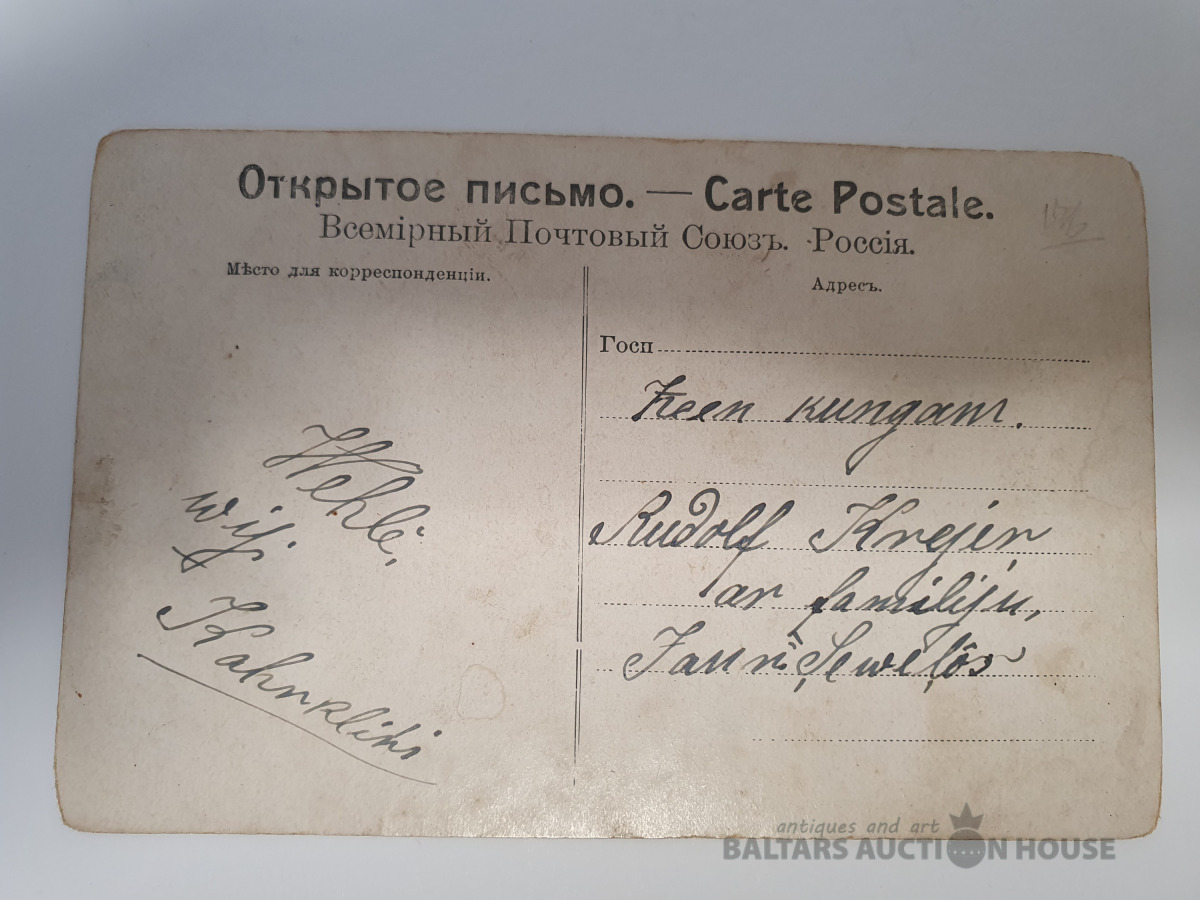 Открытое письмо. — Carte Postale.
Всемірный Почтовый Союзъ. Россія.
Мѣсто для корреспонденціи.
Адресъ.
Госп
kungam.
Rudolf
ar familiju,
Wehlē
wij.
antiques and art
BALTARS AUCTION HOUSE